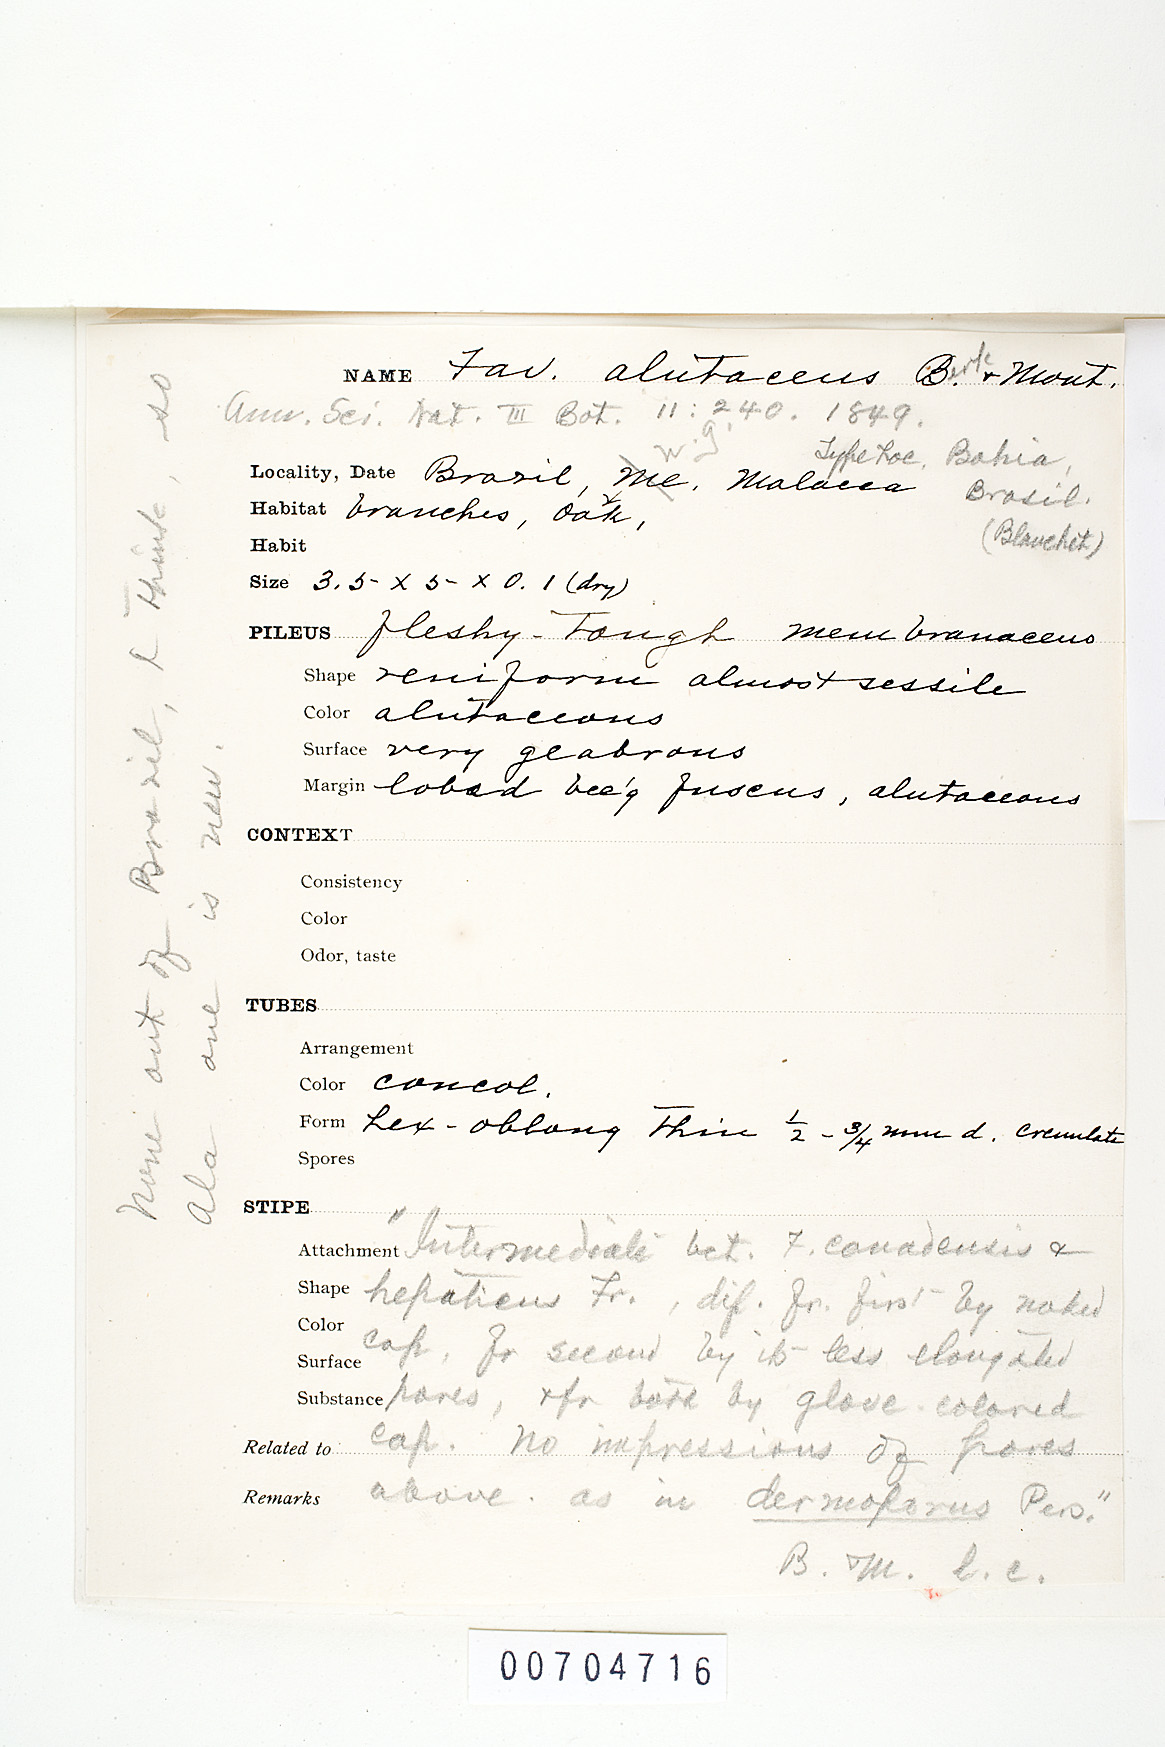 NAME Fav. alutaceus B.erk & Mont.
Ann. Sci. Nat. III Bot. 11: 240. 1849.
W. J.
Type Loc. Bahia,
Locality, Date Brazil, Me, Malacca
Brasil.
Habitat branches, oak,
(Blanchet)
Habit
Size 3.5 - x 5 - x 0.1 (dry)
PILEUS fleshy-tough membranaceus
Shape reniform almost sessile
Color alutaceous
Surface very glabrous
Margin lobed bec'g fuscus, alutaceous
CONTEXT
Consistency
Color
Odor, taste
TUBES
Arrangement
Color concol.
Form hex-oblong thin ½ - ¾ mm d. crenulate
Spores
STIPE
Attachment "Intermediate bet. F. canadensis &
Shape hepaticus Fr., dif. fr. first by naked
Color
Surface cap, fr second by its less elongated
Substance pores, & fr both by glove-colored
Related to cap. No impressions of pores
Remarks above. as in dermoporus Pers."
B. & M. l. c.
None out of Brazil, I think, so
Ala one is new.
00704716